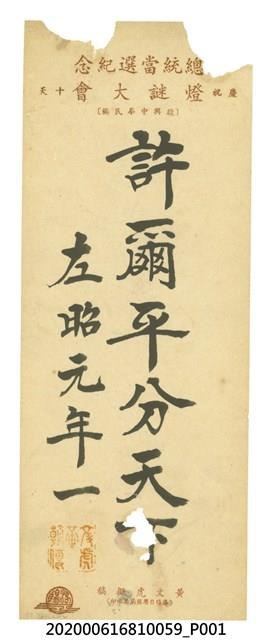 總統當選紀念
慶祝燈謎大會十天
〔設興中華民稿〕
許爾平分天下
左昭元年一
黃文虎擬稿
202000616810059_P001